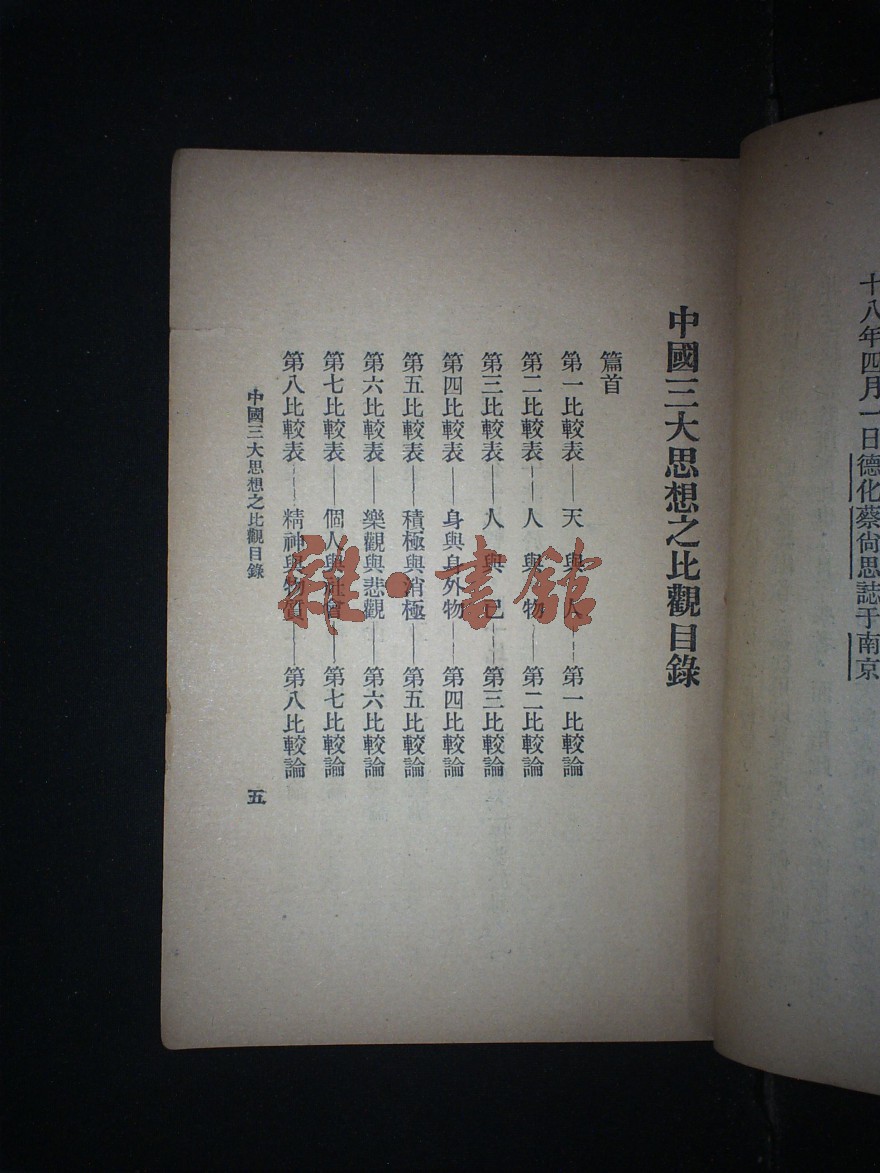 十八年四月一日德化蔡尙思誌于南京
中國三大思想之比觀目錄
篇首
第一比較表——天與人——第一比較論
第二比較表——人與物——第二比較論
第三比較表——人與己——第三比較論
第四比較表——身與身外物——第四比較論
第五比較表——積極與消極——第五比較論
第六比較表——樂觀與悲觀——第六比較論
第七比較表——個人與社會——第七比較論
第八比較表——精神與物質——第八比較論
中國三大思想之比觀目錄
五
雅·書館